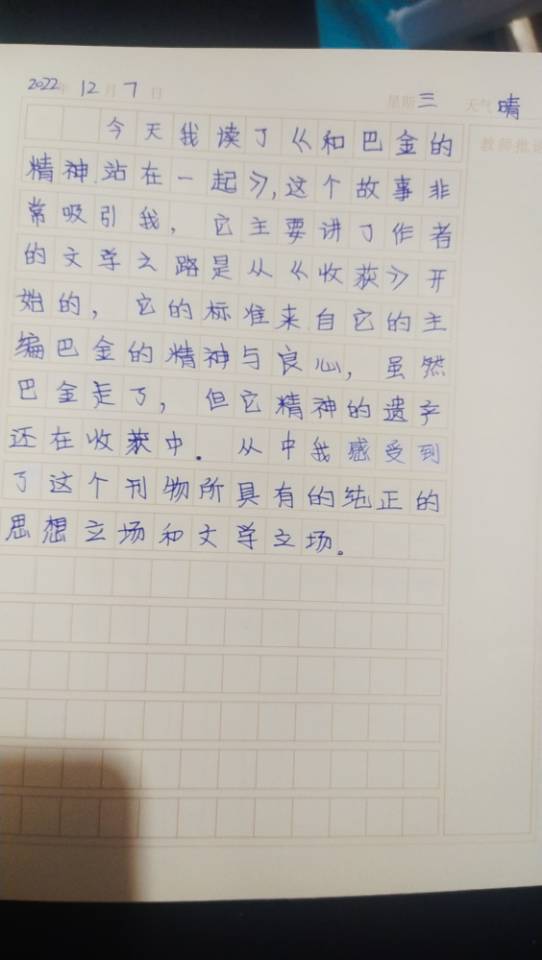 2022年 12月 7日 星期三 天气晴
教师批
今天我读了《和巴金的
精神站在一起》,这个故事非
常吸引我，它主要讲了作者
的文学之路是从《收获》开
始的，它的标准来自它的主
编巴金的精神与良心，虽然
巴金走了，但它精神的遗产
还在收获中．从中我感受到
了这个刊物所具有的纯正的
思想立场和文学立场。